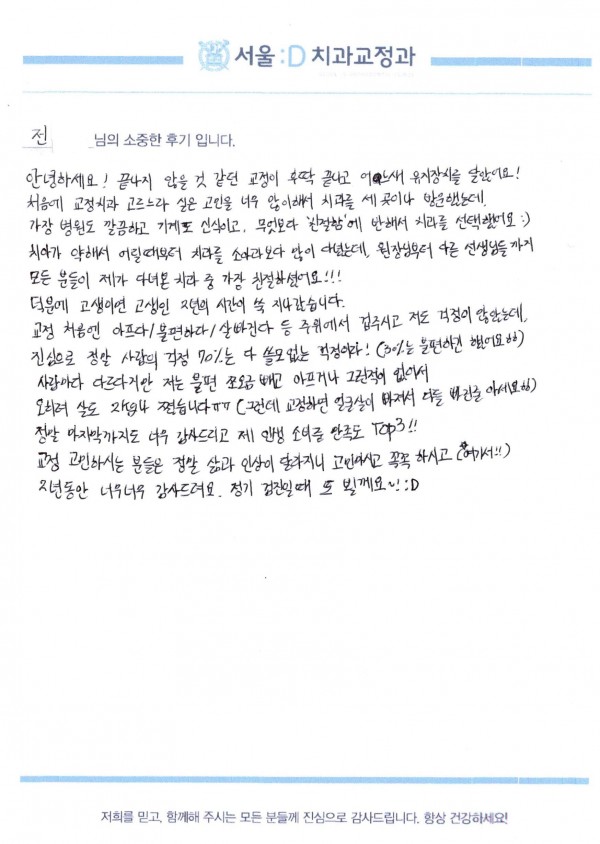 서울:D 치과교정과
전 님의 소중한 후기 입니다.
안녕하세요! 끝나지 않을 것 같던 교정이 후딱 끝나고 어느새 유지장치를 달았어요!
처음에 교정치과 고르느라 싫은 고민을 너무 많이해서 치과를 세 곳이나 방문했는데,
가장 병원도 깔끔하고 기계도 신식이고, 무엇보다 '친절함'에 반해서 치과를 선택했어요 :)
치아가 약해서 어릴때부터 치과를 소아과보다 많이 다녔는데, 원장님부터 다른 선생님들까지
모든 분들이 제가 다녀본 치과 중 가장 친절하셨어요!!!
덕분에 고생이면 고생인 2년의 시간이 쑥 지나갔습니다.
교정 처음엔 아프다/불편하다/살빠진다 등 주위에서 겁주시고 저도 걱정이 많았는데,
진심으로 정말 사람의 걱정 70%는 다 쓸모없는 걱정이다! (30%는 불편하긴 했어요ㅎㅎ)
사람마다 다르다지만 저는 불편 쪼오금 빼고 아프거나 그런적이 없어서
오히려 살도 2kg나 쪘습니다ㅠㅠ (그런데 교정하면 얼굴살이 빠져서 다들 빠진줄 아세요ㅎㅎ)
정말 마지막까지도 너무 감사드리고 제 인생 소비들 만족도 Top3!!
교정 고민하시는 분들은 정말 삶과 인상이 달라지니 고민마시고 꼭꼭 하시고 (여기서!!)
2년동안 너무너무 감사드려요. 정기 검진일때 또 뵐께요~! :D
저희를 믿고, 함께해 주시는 모든 분들께 진심으로 감사드립니다. 항상 건강하세요!